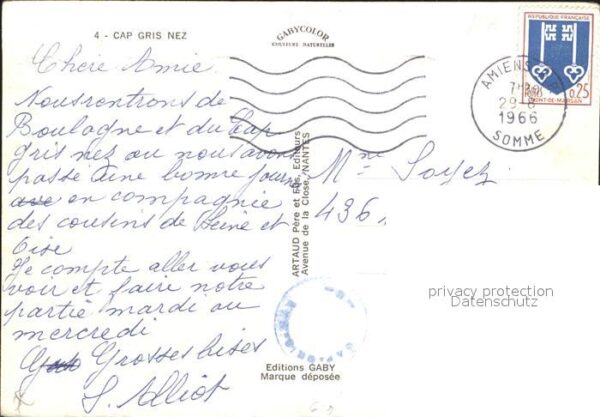 4 - CAP GRIS NEZ
GABYCOLOR
COULEURS NATURELLES
Chère Amie
Nous rentrons de
Boulogne et du Cap
gris nez ou nous avons
passé une bonne journée
en compagnie
des cousins de Seine et
Oise
Je compte aller vous
voir et faire notre
partie mardi ou
mercredi
Grosses bises
S. Alliot
ARTAUD Père et Fils, Editeurs
Avenue de la Close, NANTES
Mme Soyez
436,
REPUBLIQUE FRANÇAISE
0,25
MONT-DE-MARSAN
AMIENS
7H
29-8
1966
SOMME
privacy protection
Datenschutz
Editions GABY
Marque déposée